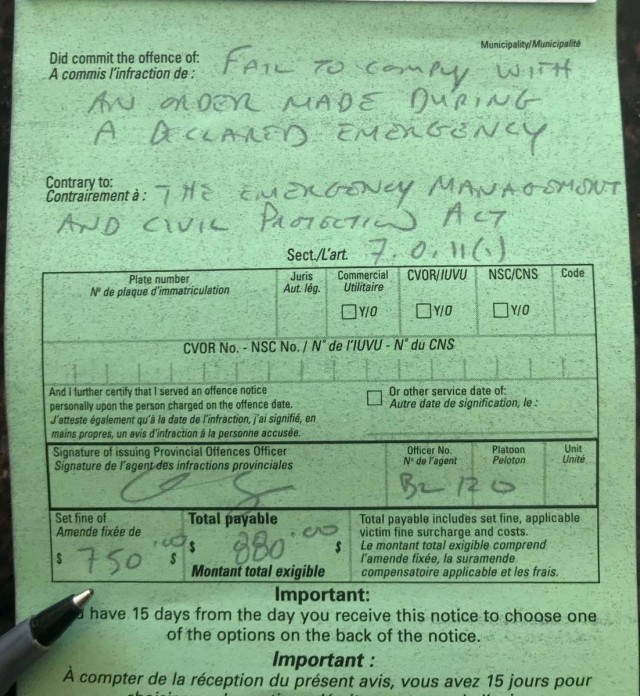 Municipality/Municipalité
Did commit the offence of: FAIL TO COMPLY WITH
A commis l'infraction de :
AN ORDER MADE DURING
A DECLARED EMERGENCY
Contrary to: THE EMERGENCY MANAGEMENT
Contrairement à :
AND CIVIL PROTECTION ACT
Sect./L'art. 7.0.11(1)
Plate number Juris Commercial CVOR/IUVU NSC/CNS Code
N° de plaque d'immatriculation Aut. lég. Utilitaire
Y/O Y/O Y/O
CVOR No. - NSC No. / N° de l'IUVU - N° du CNS
And I further certify that I served an offence notice
personally upon the person charged on the offence date.
J'atteste également qu'à la date de l'infraction, j'ai signifié, en
mains propres, un avis d'infraction à la personne accusée.
Or other service date of:
Autre date de signification, le :
Signature of issuing Provincial Offences Officer
Signature de l'agent des infractions provinciales
Officer No. Platoon Unit
N° de l'agent Peloton Unité
Set fine of
Amende fixée de
$ 750.00 $
Total payable
$ 880.00 $
Montant total exigible
Total payable includes set fine, applicable
victim fine surcharge and costs.
Le montant total exigible comprend
l'amende fixée, la suramende
compensatoire applicable et les frais.
Important:
have 15 days from the day you receive this notice to choose one
of the options on the back of the notice.
Important :
À compter de la réception du présent avis, vous avez 15 jours pour